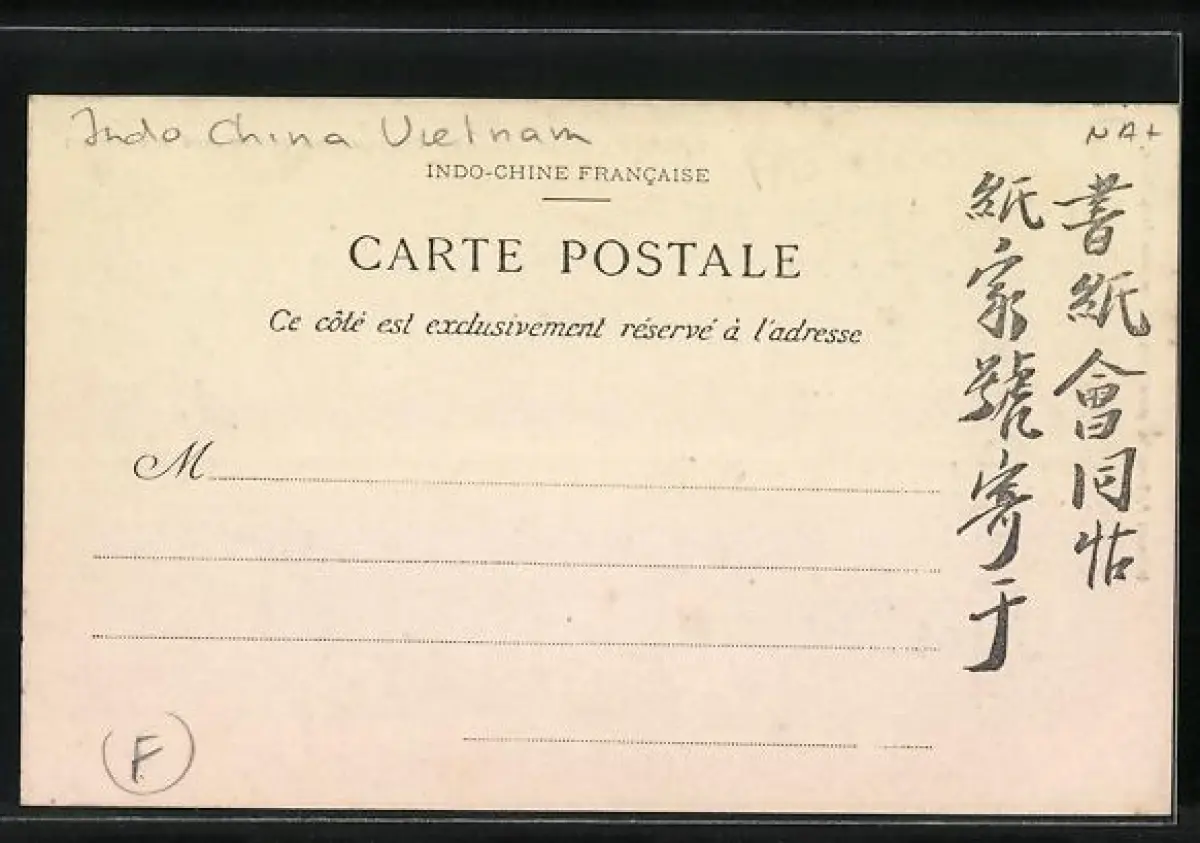 Indo China Vietnam
NA+
INDO-CHINE FRANÇAISE
CARTE POSTALE
Ce côté est exclusivement réservé à l'adresse
M
書紙會同帖
紙家號寄于
F